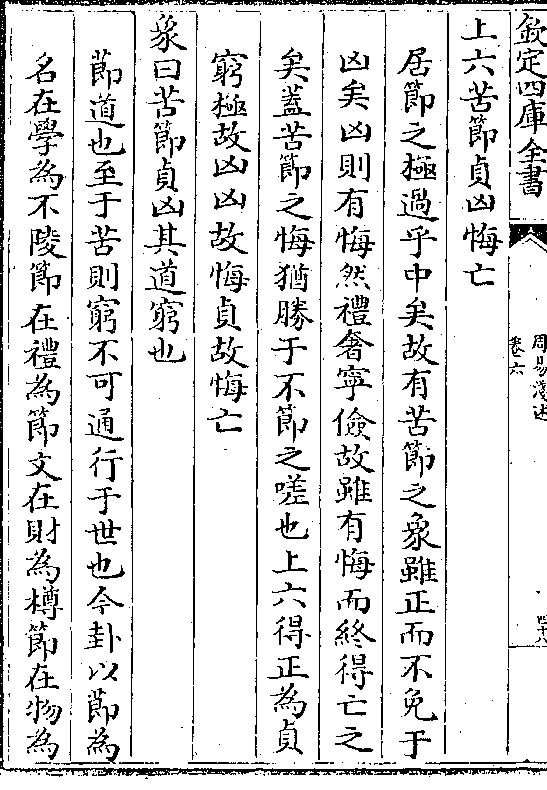 欽定四庫全書
周易淺述
卷六
四十八
上六苦節貞凶悔亡
居節之極過乎中矣故有苦節之象雖正而不免于
凶矣凶則有悔然禮奢寧儉故雖有悔而終得亡之
矣蓋苦節之悔猶勝于不節之嗟也上六得正為貞
窮極故凶凶故悔貞故悔亡
象曰苦節貞凶其道窮也
節道也至于苦則窮不可通行于世也今卦以節為
名在學為不陵節在禮為節文在財為樽節在物為